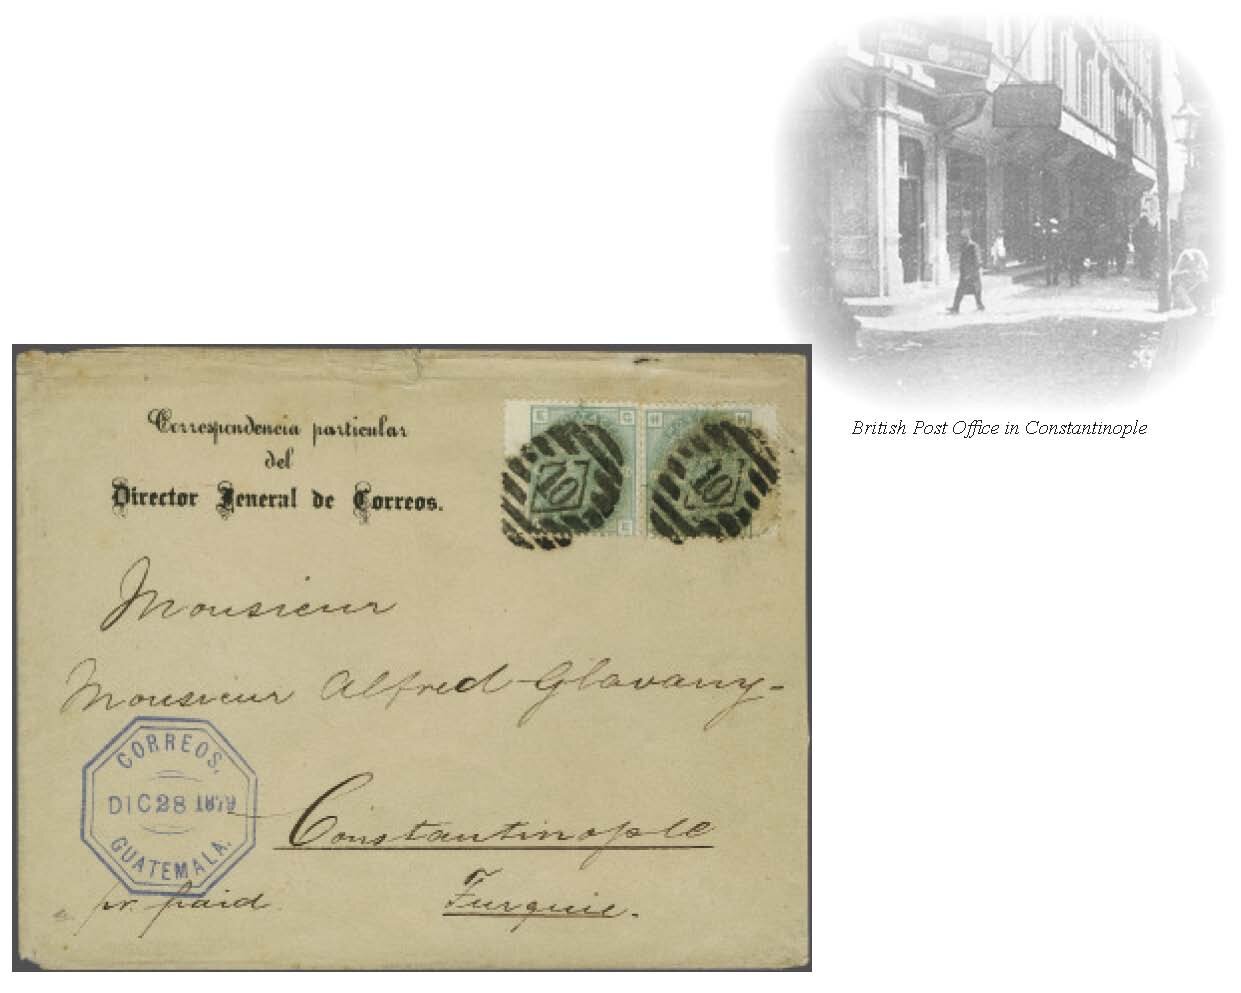 British Post Office in Constantinople
Correspondencia particular
del
Director General de Correos.
E G H H
10 10
E
Monsieur
Monsieur Alfred Glavany-
CORREOS.
DIC 28 1879
GUATEMALA.
Constantinople
pr. paid.
Turquie.